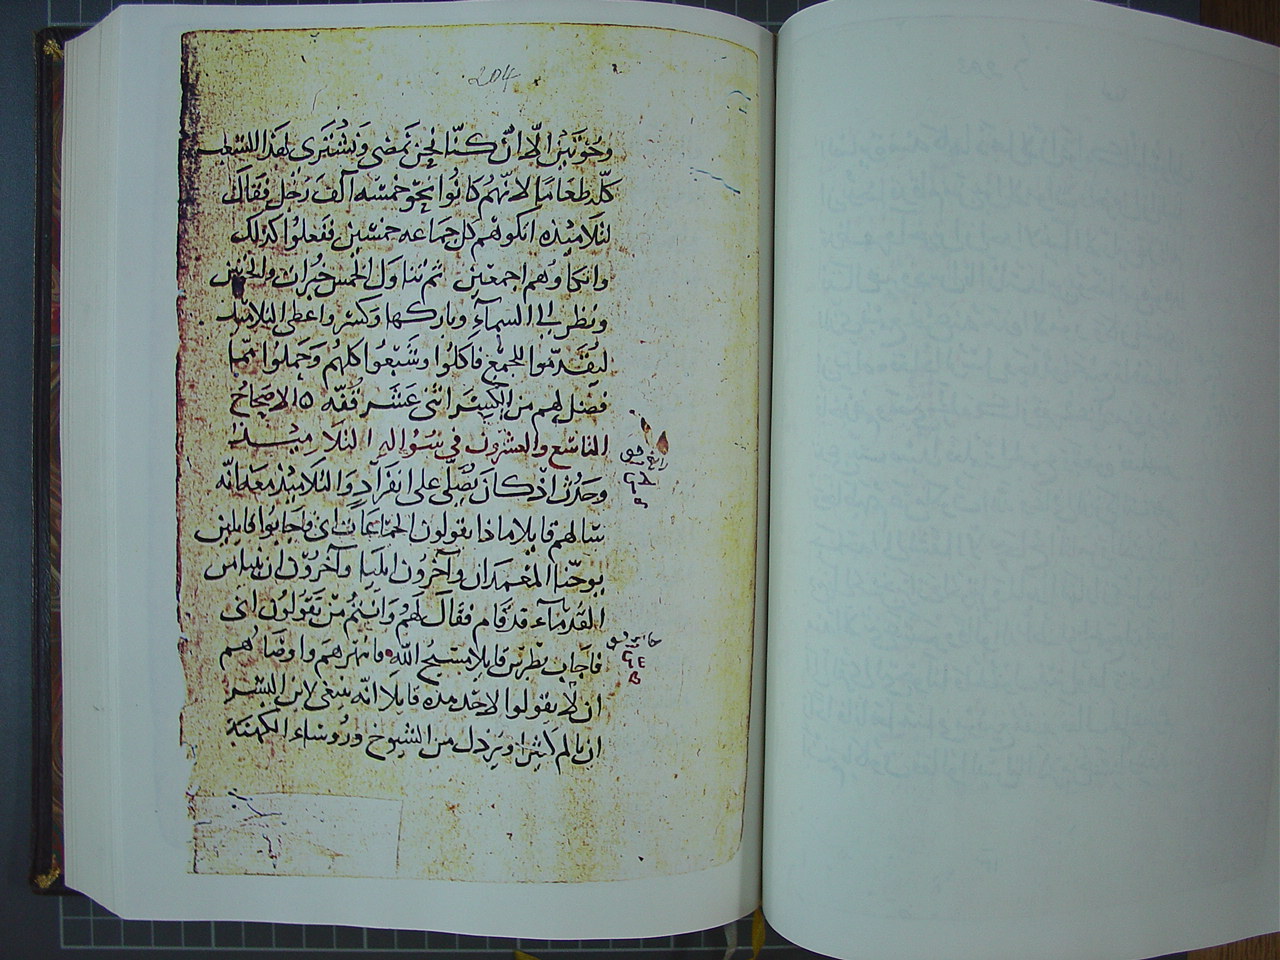 204
وحوتين الا ان كنّا نحن نمضى ونشترى لهذا الشعب
كلّه طعامًا لانهم كانوا نحو خمسه آلف رجل فقال
لتلاميذه اتكوهم كل جماعه خمسين ففعلوا كذلك
واتكاوهم اجمعين ثم تناول الخمس خبزات والحوتين
ونظر الى السمآء وباركها وكسر واعطى التلاميذ
ليقدّموا للجمع فاكلوا وشبعوا كلهم وحملوا ممّا
فضل لهم من الكسر اثنى عشر قفّه الاصحاح
التاسع والعشرون فى سواله التلاميذ
وحدث اذ كان يُصَلّى على انفرادٍ والتلاميذ معه انّه
سالهم قايلا ماذا يقولون الجماعات انى فاجابوا قايلين
يوحنا المغمدان وآخرون ايليا وآخرون ان نبيا من
القدمآء قد قام فقال لهم وانتم من يقولون انى
فاجاب بطرس قايلا مسيح الله فانتهرهم واوصاهم
ان لا يقولوا لاحد هذه قايلا انّه ينبغى لابن البشر
ان يالم كثيرا ويرذل من الشيوخ وروساء الكهنة